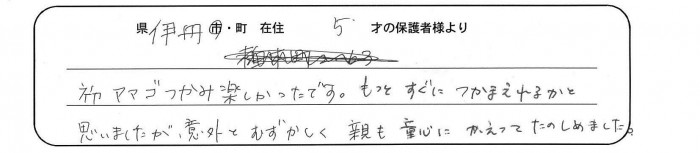 県 伊丹 市・町 在住 5 才の保護者様より
初アマゴつかみ楽しかったです。もっとすぐにつかまえれるかと
思いましたが、意外とむずかしく親も童心にかえってたのしめました。